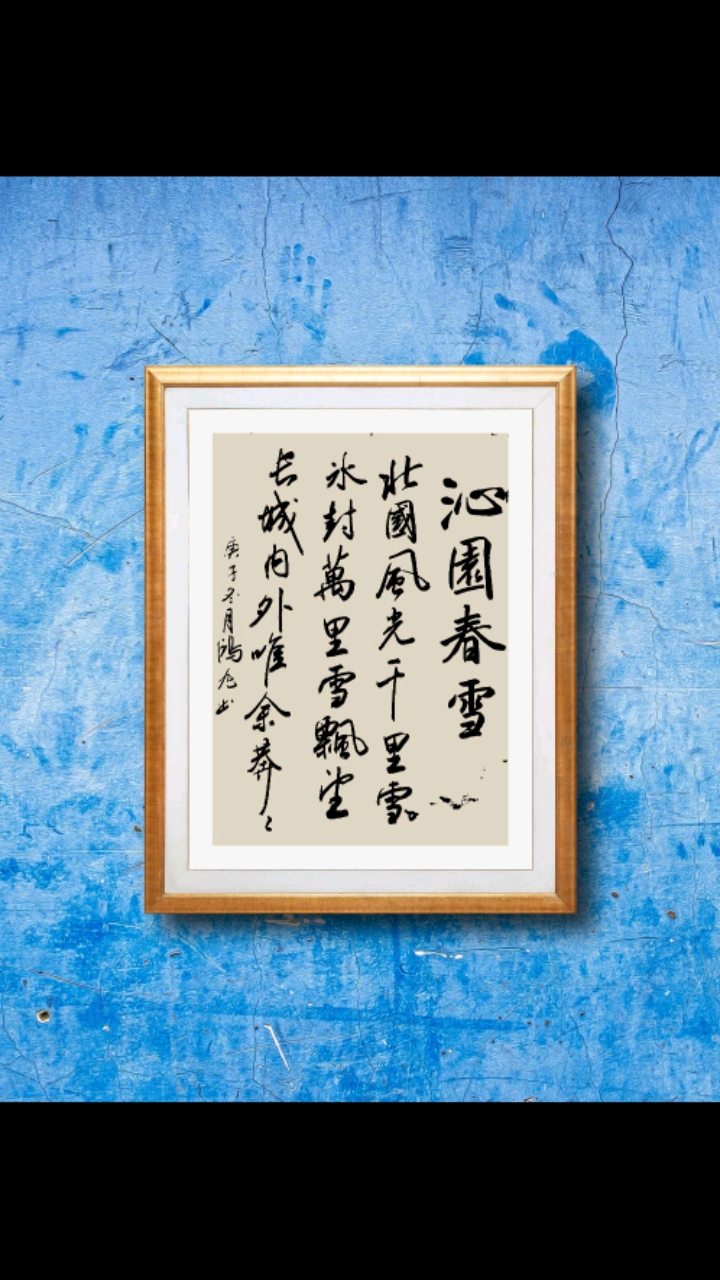 沁園春雪
北國風光千里雪。
冰封萬里雪飄望
长城内外唯余莽々
庚子冬月鴻书